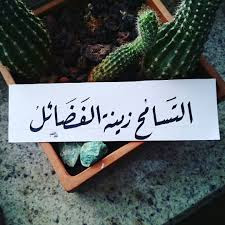 التسَامح زينة الفَضَائل